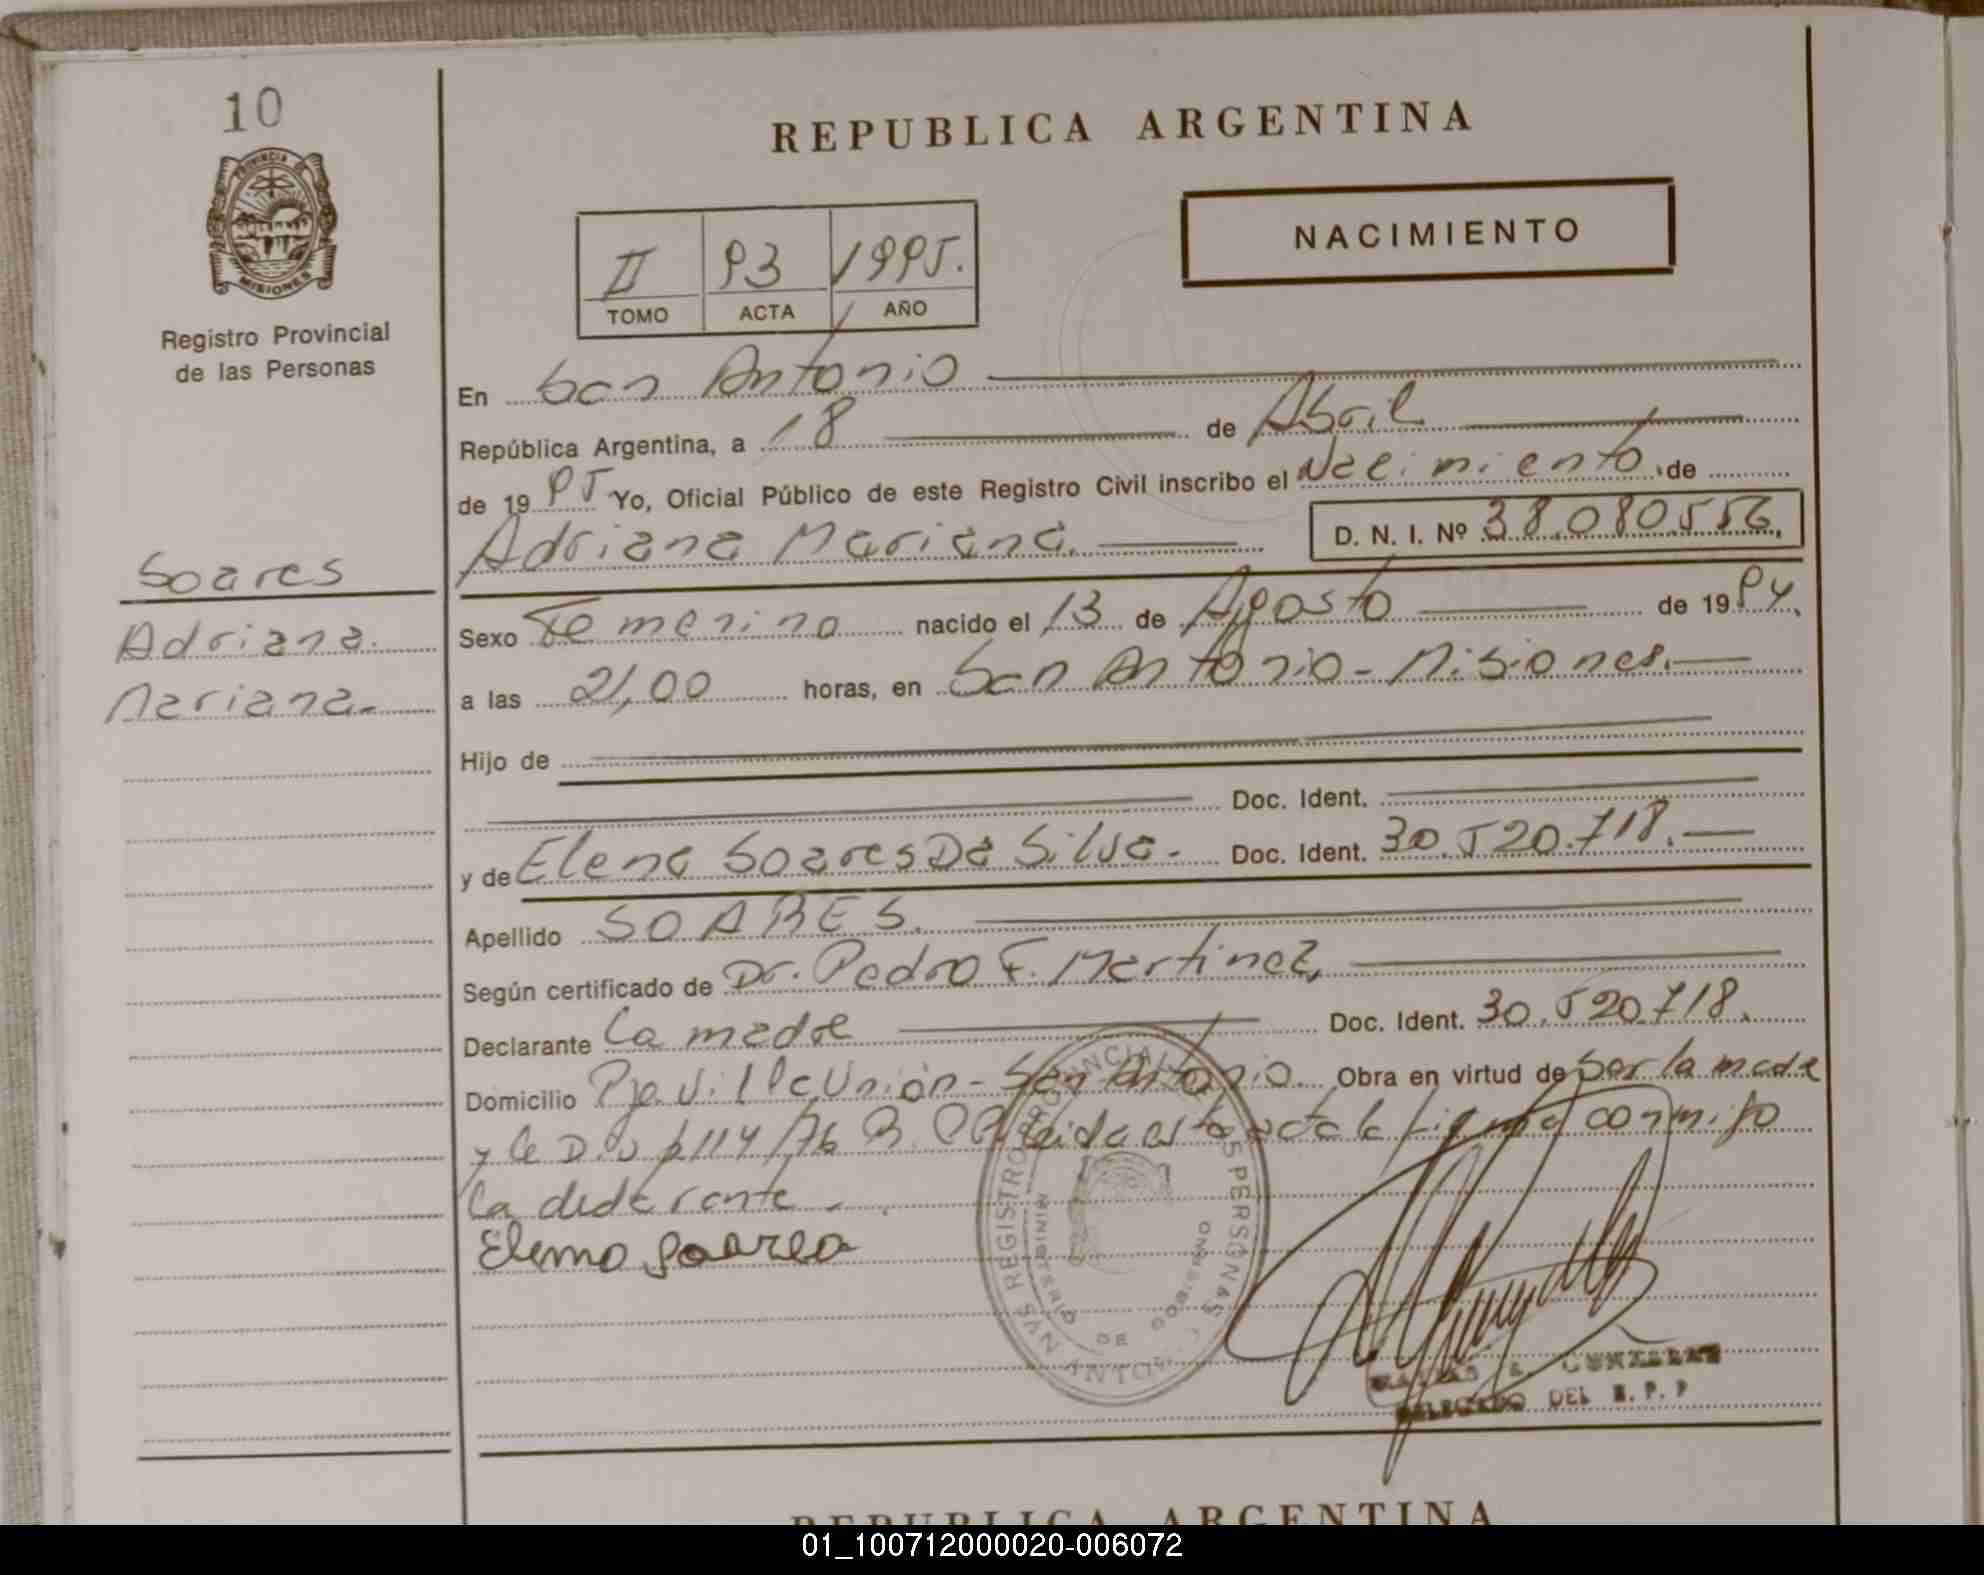 10
REPUBLICA ARGENTINA
PROVINCIA DE
MISIONES
NACIMIENTO
II 93 1995.
TOMO ACTA AÑO
Registro Provincial
de las Personas
En San Antonio
República Argentina, a 18 de Abril
de 1995 Yo, Oficial Público de este Registro Civil inscribo el Nacimiento de
Adriana Mariana. D. N. I. Nº 38.080.556.
Soares
Adriana.
Mariana.
Sexo Femenino nacido el 13 de Agosto de 1994.
a las 21,00 horas, en San Antonio - Misiones.
Hijo de
Doc. Ident.
y de Elena Soares Da Silva. Doc. Ident. 30.520.718.
Apellido SOARES.
Según certificado de Dr. Pedro F. Martinez,
Declarante La madre Doc. Ident. 30.520.718.
Domicilio Pje. Villa Union - San Antonio. Obra en virtud de ser la madre
y le Leida esta acta la firma conmigo
la declarante.
Elena Soares
REGISTRO PROVINCIAL DE LAS PERSONAS
MINISTERIO DE GOBIERNO
SAN ANTONIO
GONZALEZ
DELEGADO DEL R. P. P
REPUBLICA ARGENTINA
01_100712000020-006072